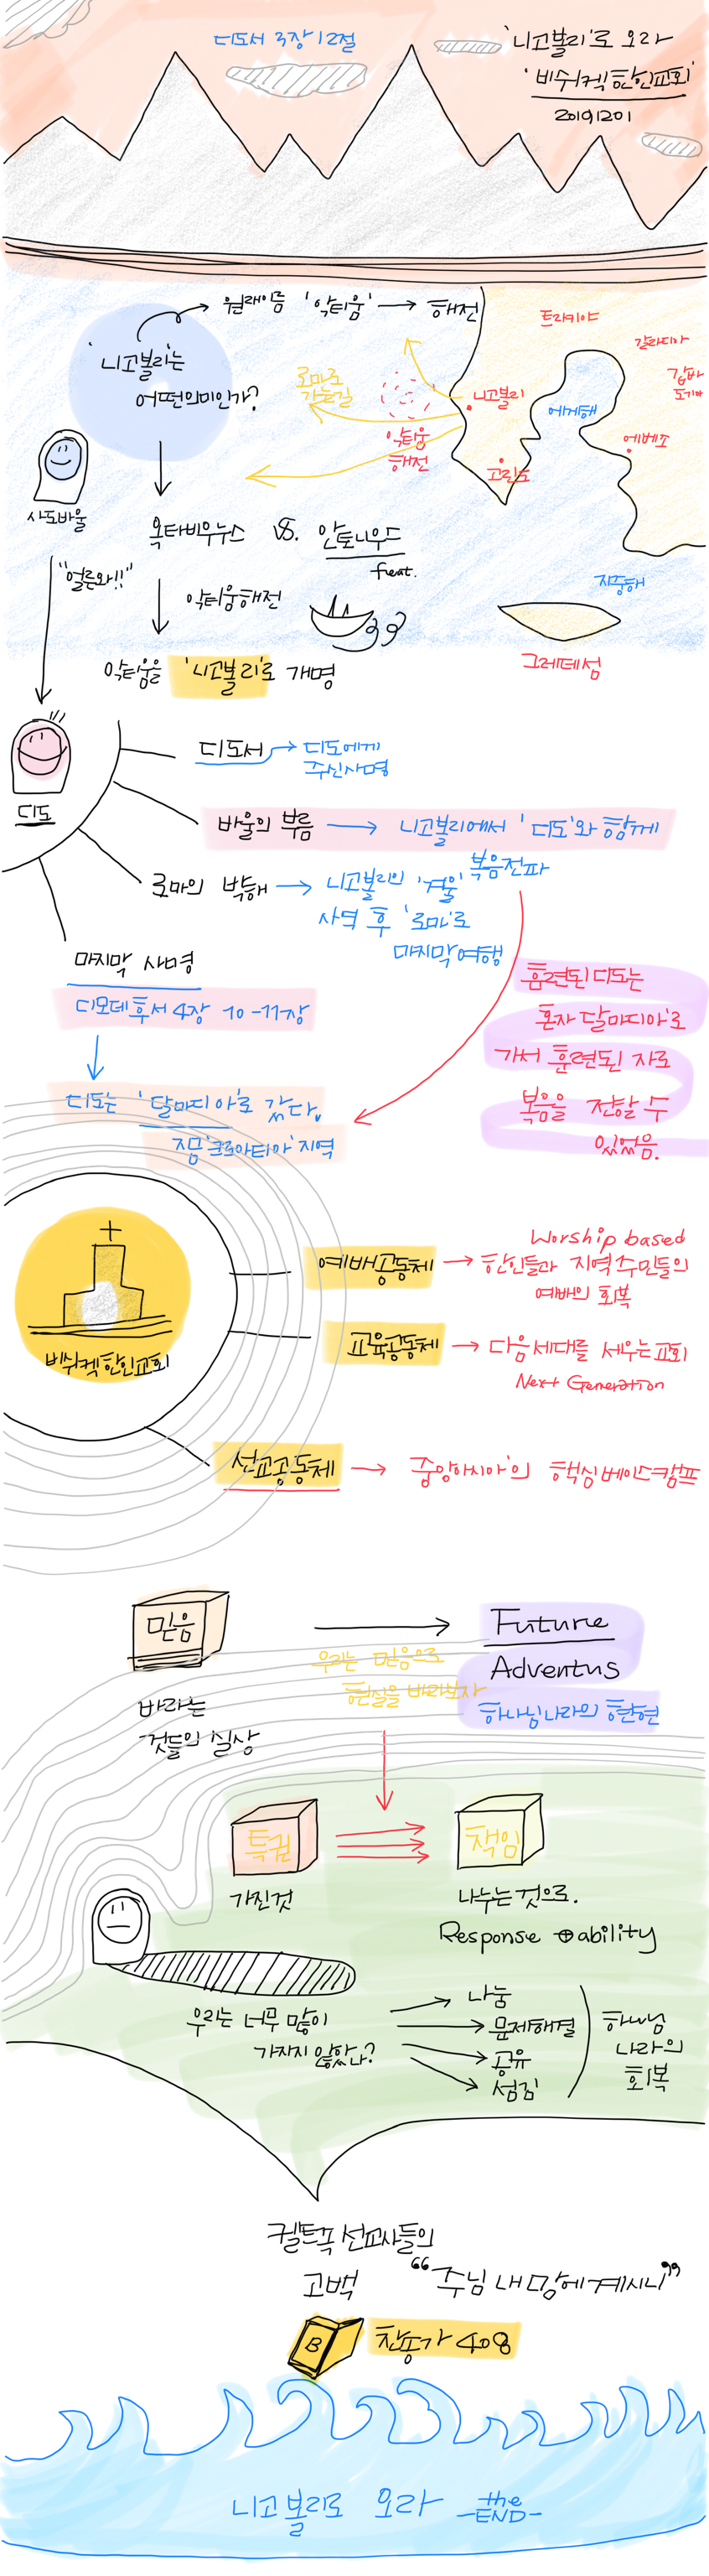 디도서 3장 12절
'니고볼리'로 오라
'비쉬켁한인교회'
20191201
원래이름 '악티움' → 해전
'니고볼리'는
어떤의미인가?
로마로
가는길
악티움
해전
트라키아
갈라디아
갑바
도기아
니고볼리
에게해
에베소
고린도
사도바울
"얼른와!!"
옥타비우누스 VS. 안토니우드
feat.
악티움해전
지중해
그레데섬
악티움을 '니고볼리'로 개명
디도
디도서 → 디도에게
주신사명
바울의 부름 → 니고볼리에서 '디도'와 함께
복음전파
로마의 박해 → 니고볼리의 '겨울'
사역 후 '로마'로
마지막여행
마지막 사명
디모데후서 4장 10-11장
훈련된 디도는
혼자 달마디아'로
가서 훈련된 자로
복음을 전할 수
있었음.
디도는 '달마디아'로 갔다.
지금'크로아티아'지역
비쉬켁한인교회
예배공동체 →
Worship based
한인들과 지역주민들의
예배의 회복
교육공동체 → 다음세대를 세우는교회
Next Generation
선교공동체 → 중앙아시아'의 핵심베이스캠프
믿음
바라는
것들의 실상
우리는 믿음으로
현실을 바라보자
Future
Adventus
하나님나라의 현현
특권
가진것
책임
나누는것으로.
Response ⊕ ability
우리는 너무 많이
가지지 않았나?
나눔
문제해결
공유
섬김
하나님
나라의
회복
켈트족 선교사들의
고백 "주님 내 맘에 계시니"
B
찬송가 408
니고볼리로 오라 -the END-